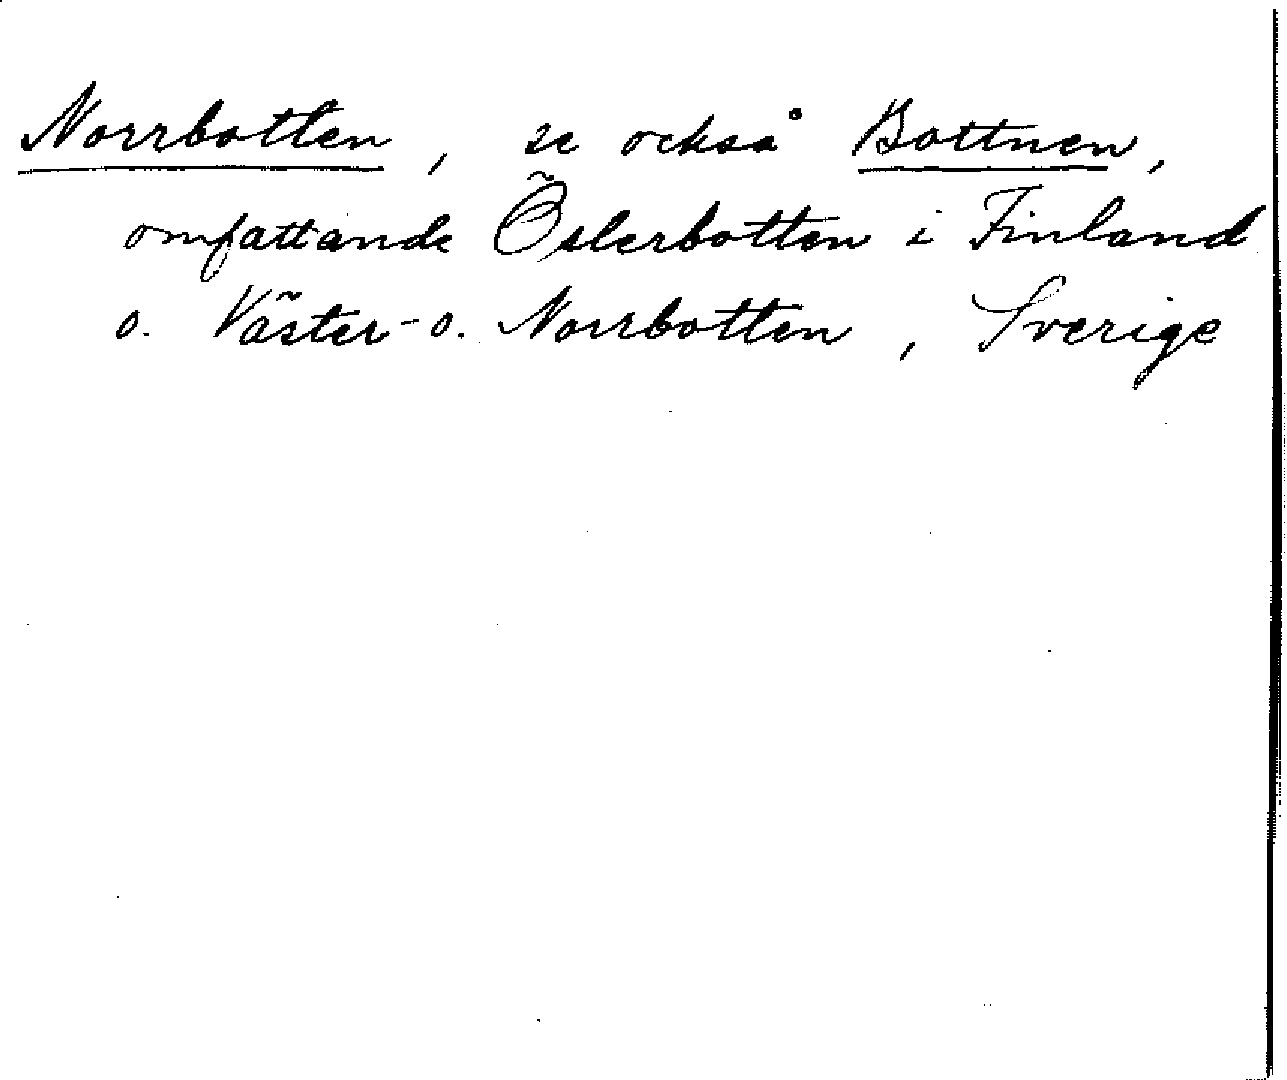 Norrbotten, se också Bottnen,
omfattande Österbotten i Finland
o. Väster- o. Norrbotten, Sverige